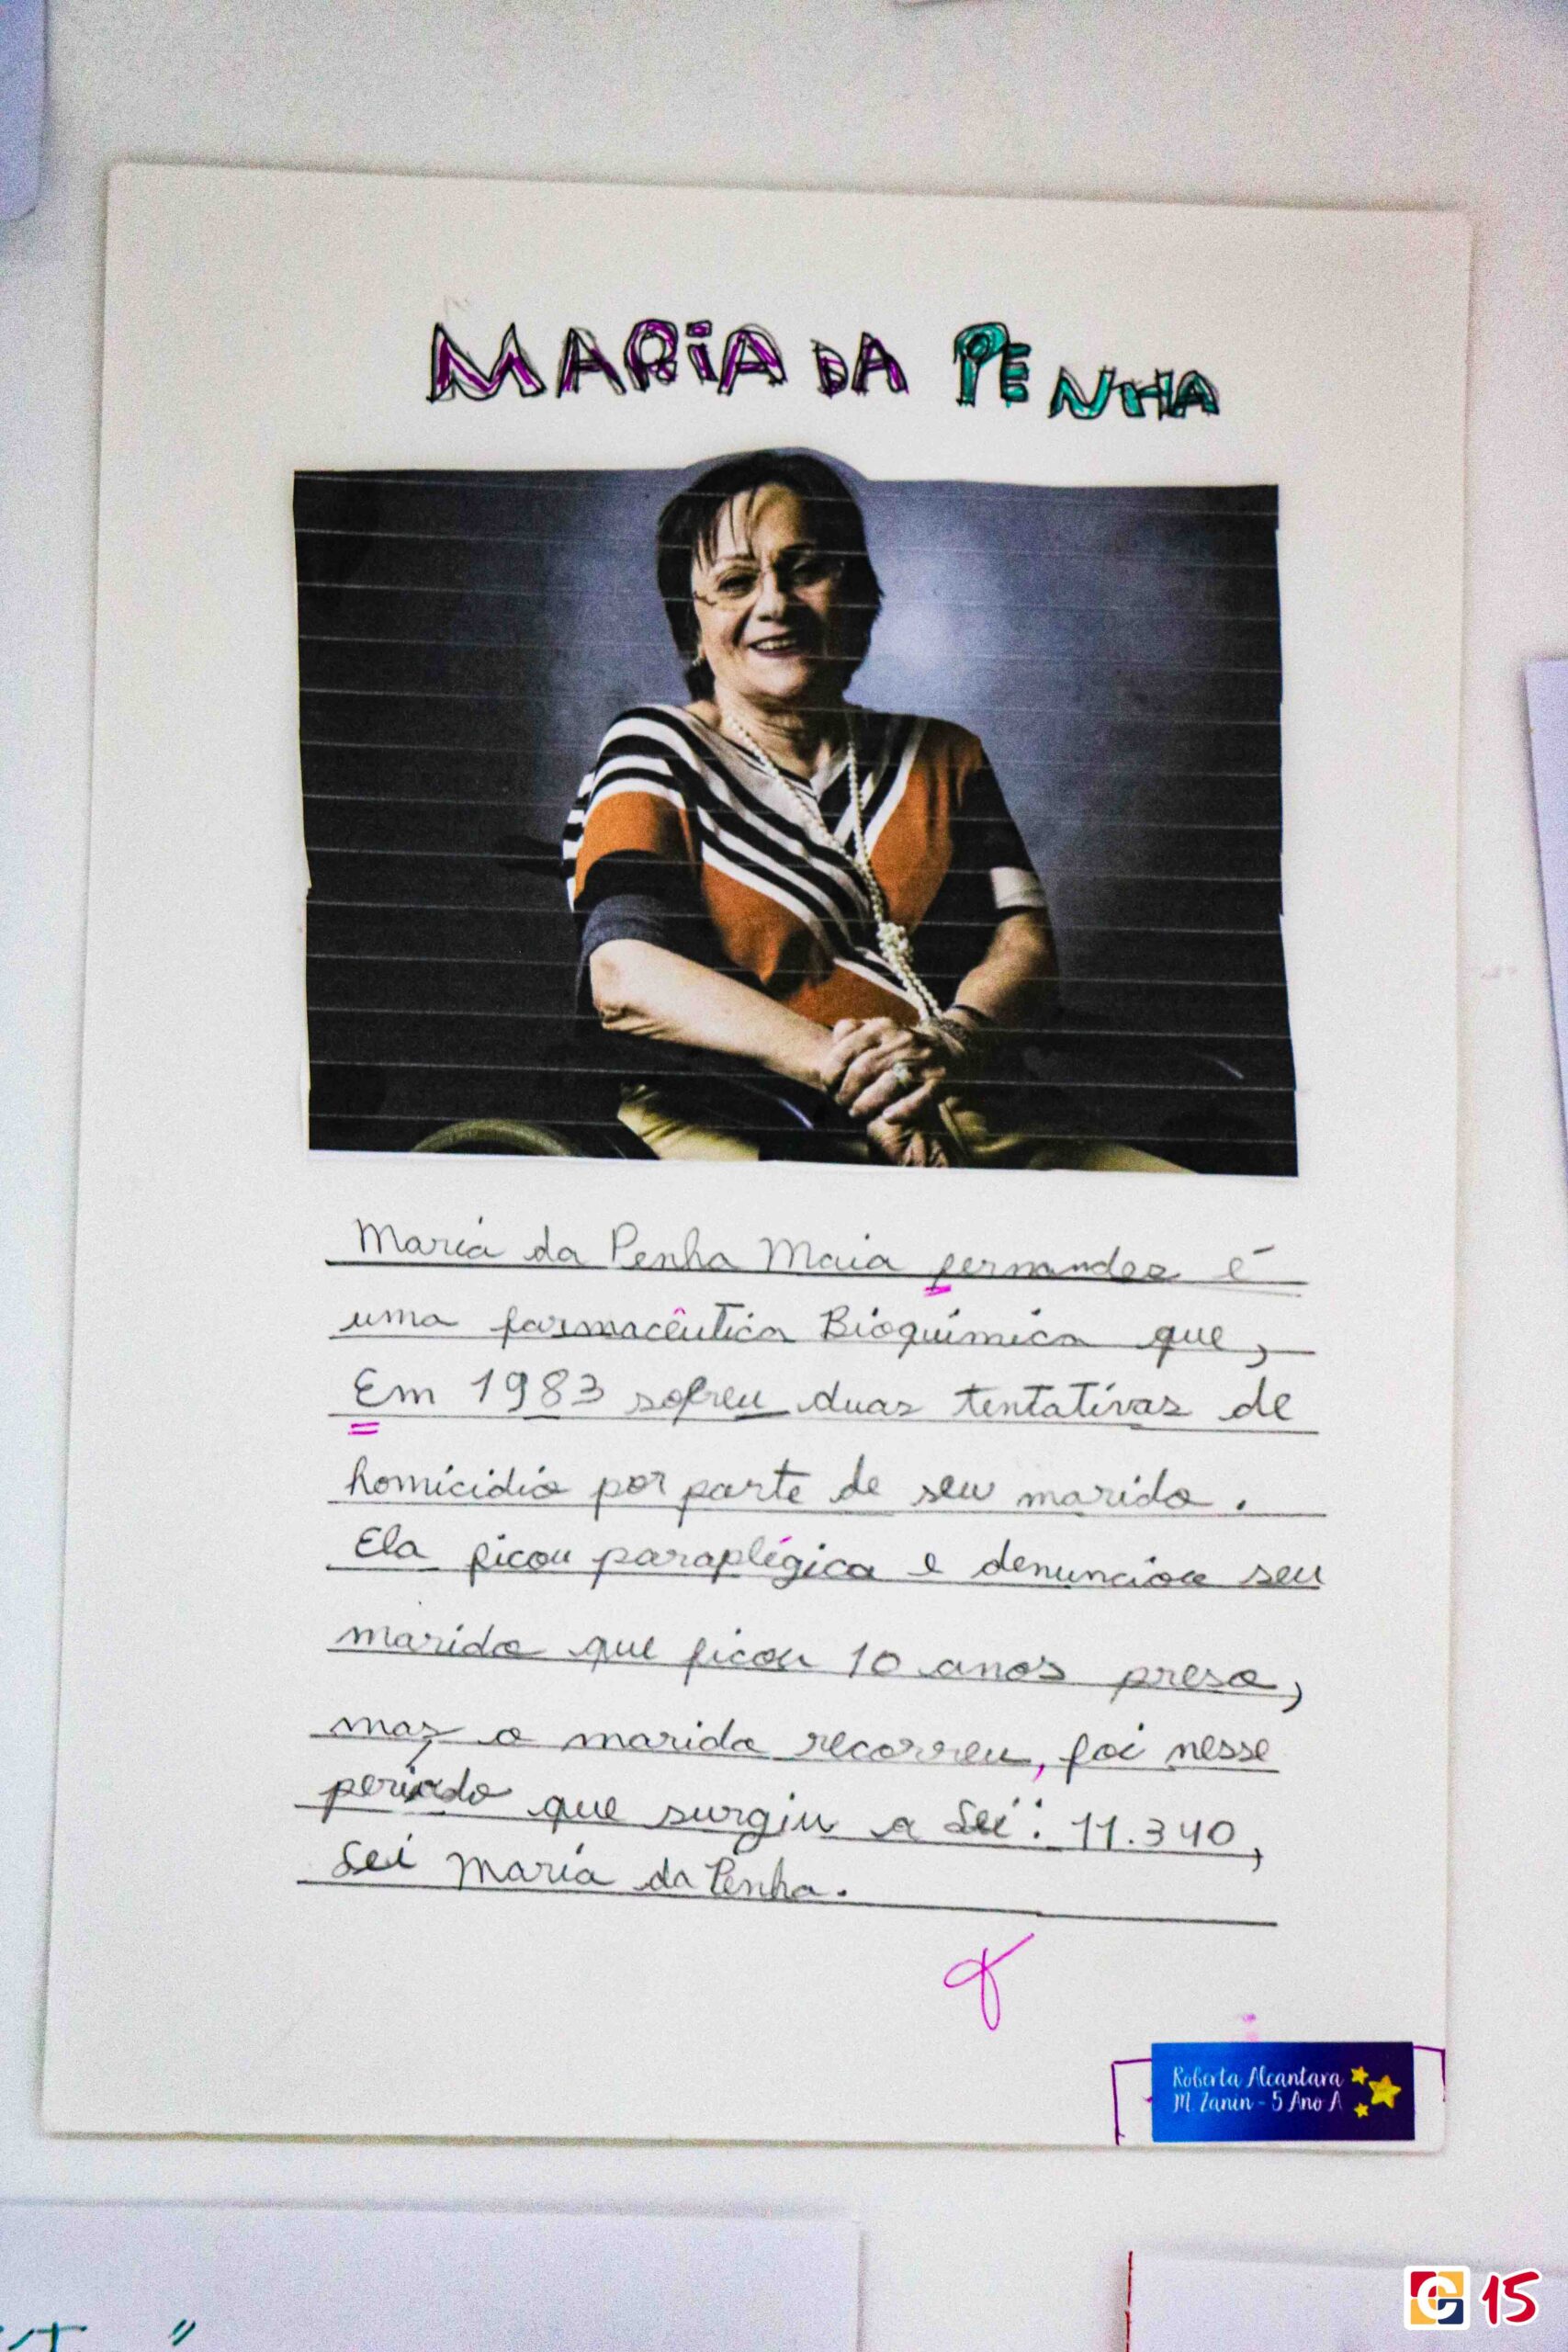 MARiA DA PENHA
Maria da Penha Maia fernandes é
uma farmacêutica Bioquímica que,
Em 1983 sofreu duas tentativas de
homicidio por parte de seu marido.
Ela ficou paraplégica e denunciou seu
marido que ficou 10 anos preso,
mas o marido recorreu, foi nesse
período que surgiu a Lei: 11.340,
Lei Maria da Penha.
Roberta Alcantara
M. Zanin - 5 Ano A
15